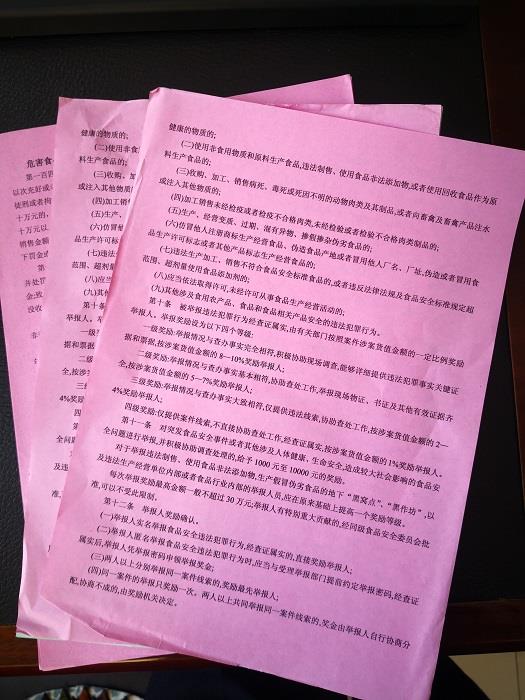 健康的物质的;
(二)使用非食用物质和原料生产食品,违法制售、使用食品非法添加物,或者使用回收食品作为原
料生产食品的;
(三)收购、加工、销售病死、毒死或死因不明的动物肉类及其制品,或者向畜禽及畜禽产品注水
或注入其他物质的;
(四)加工销售未经检疫或者检疫不合格肉类,未经检验或者检验不合格肉类制品的;
(五)生产、经营变质、过期、混有异物、掺假掺杂伪劣食品的;
(六)仿冒他人注册商标生产经营食品、伪造食品产地或者冒用他人厂名、厂址,伪造或者冒用食
品生产许可标志或者其他产品标志生产经营食品的;
(七)违法生产加工、销售不符合食品安全标准食品的,或者违反法律法规及食品安全标准规定超
范围、超剂量使用食品添加剂的;
(八)应当依法取得许可,未经许可从事食品生产经营活动的;
(九)其他涉及食用农产品、食品和食品相关产品安全的违法犯罪行为。
第十条 被举报违法犯罪行为经查证属实,由有关部门按照案件涉案货值金额的一定比例奖励
举报人。举报奖励设为以下四个等级:
一级奖励:举报情况与查办事实完全相符,积极协助现场调查,能够详细提供违法犯罪事实关键证
据和票据,按涉案货值金额的8—10%奖励举报人;
二级奖励:举报情况与查办事实基本相符,协助查处工作,举报现场物证、书证及其他有效证据齐
全,按涉案货值金额的5—7%奖励举报人;
三级奖励:举报情况与查办事实大致相符,仅提供违法线索,协助查处工作,按涉案货值金额的2—
4%奖励举报人;
四级奖励:仅提供案件线索,不直接协助查处工作,经查证属实,按涉案货值金额的1%奖励举报人。
第十一条 对突发食品安全事件或者其他涉及人体健康、生命安全,造成较大社会影响的食品安
全问题进行举报,并积极协助调查处理的,给予1000元至10000元的奖励。
对于举报违法制售、使用食品非法添加物,生产假冒伪劣食品的地下“黑窝点”、“黑作坊”,以
及违法生产经营单位内部或者食品行业内部的举报人员,应在原来基础上提高一个奖励等级。
每次举报奖励最高金额一般不超过30万元;举报人有特别重大贡献的,经同级食品安全委员会批
准,可以不受此限制。
第十二条 举报人奖励确认。
(一)举报人实名举报食品安全违法犯罪行为,经查证属实的,直接奖励举报人;
(二)举报人匿名举报食品安全违法犯罪行为时,应当与受理举报部门提前约定举报密码,经查证
属实后,举报人凭举报密码申领举报奖金;
(三)两人以上分别举报同一案件线索的,奖励最先举报人;
(四)同一案件的举报只奖励一次。两人以上共同举报同一案件线索的,奖金由举报人自行协商分
配,协商不成的,由奖励机关决定。
健康的物质的;
(二)使用非食
料生产食品的;
(三)收购、加
或注入其他物质
(四)加工销
(五)生产、
(六)仿冒
品生产许可标
(七)违法
范围、超剂量
(八)应
(九)其
第十
举报人。
一级
据和票据
二级
全,按涉
三级
4%奖励
危害食
第一百四
以次充好或
徒刑或者拘
十万元的,
十万元以
销售金额
下罚金或